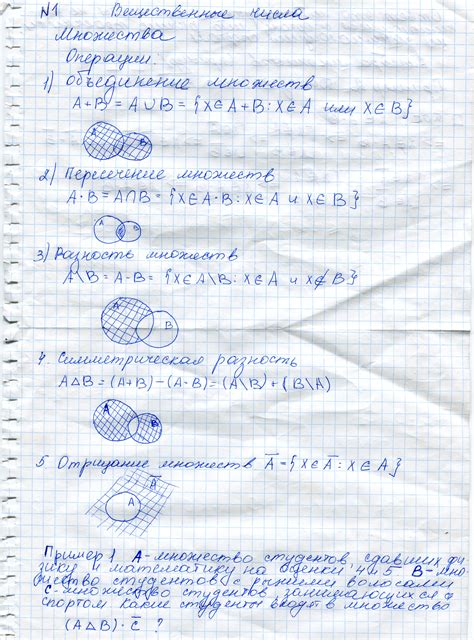 N1 Вещественные числа
Множества
Операции.
1) Объединение множеств
A+B = A∪B = {X∈A+B: X∈A или X∈B}
A B
2) Пересечение множеств
A·B = A∩B = {X∈A·B: X∈A и X∈B}
A B
3) Разность множеств
A\B = A-B = {X∈A\B: X∈A и X∉B}
A B
4. Симметрическая разность
A△B = (A+B)-(A·B) = (A\B)+(B\A)
A B
5. Отрицание множеств Ā = {X∈Ā: X∈A}
Ā
A
Пример 1 A-множество студентов, сдавших фи-
зику и математику на оценки 4 и 5 B-мно-
жество студентов с рыжими волосами
C-множество студентов, занимающихся
спортом какие студенты входят в множество
(A△B)·C̄ ?